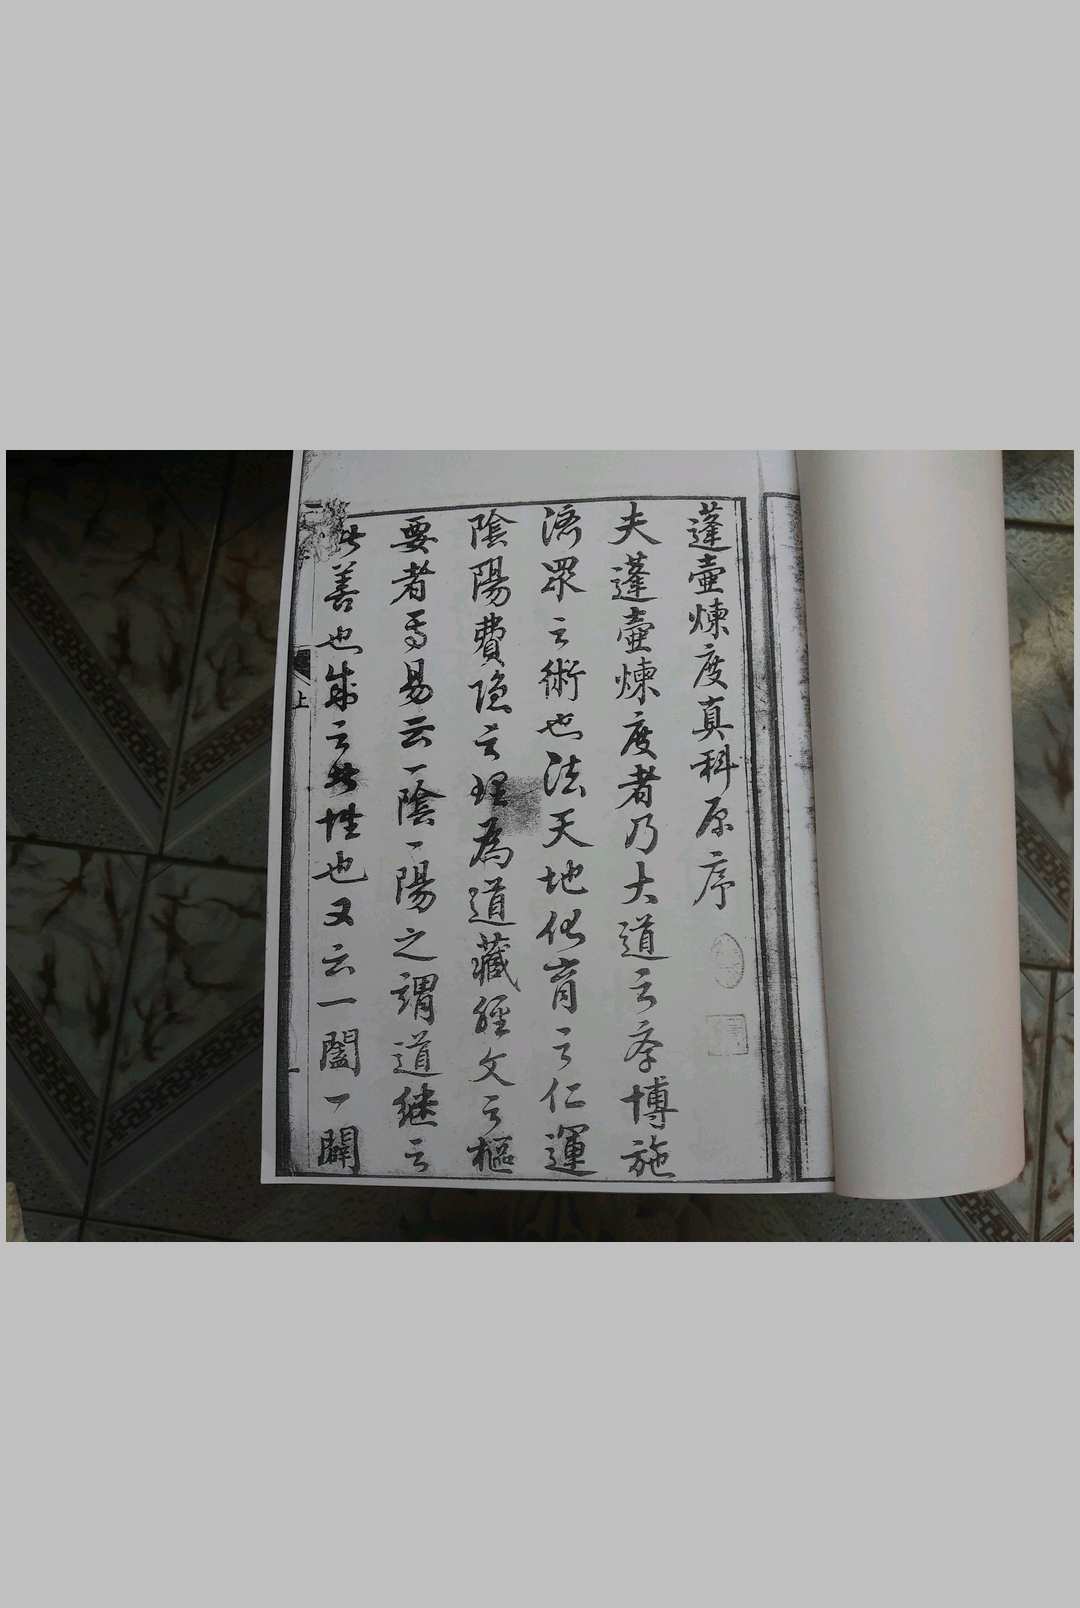 蓬壺煉度真科原序
夫蓬壺煉度者乃大道之秘博施
濟眾之術也法天地化育之仁運
陰陽費隱之理為道藏經文之樞
要者焉易云一陰一陽之謂道繼之
者善也成之者性也又云一闔一闢
上